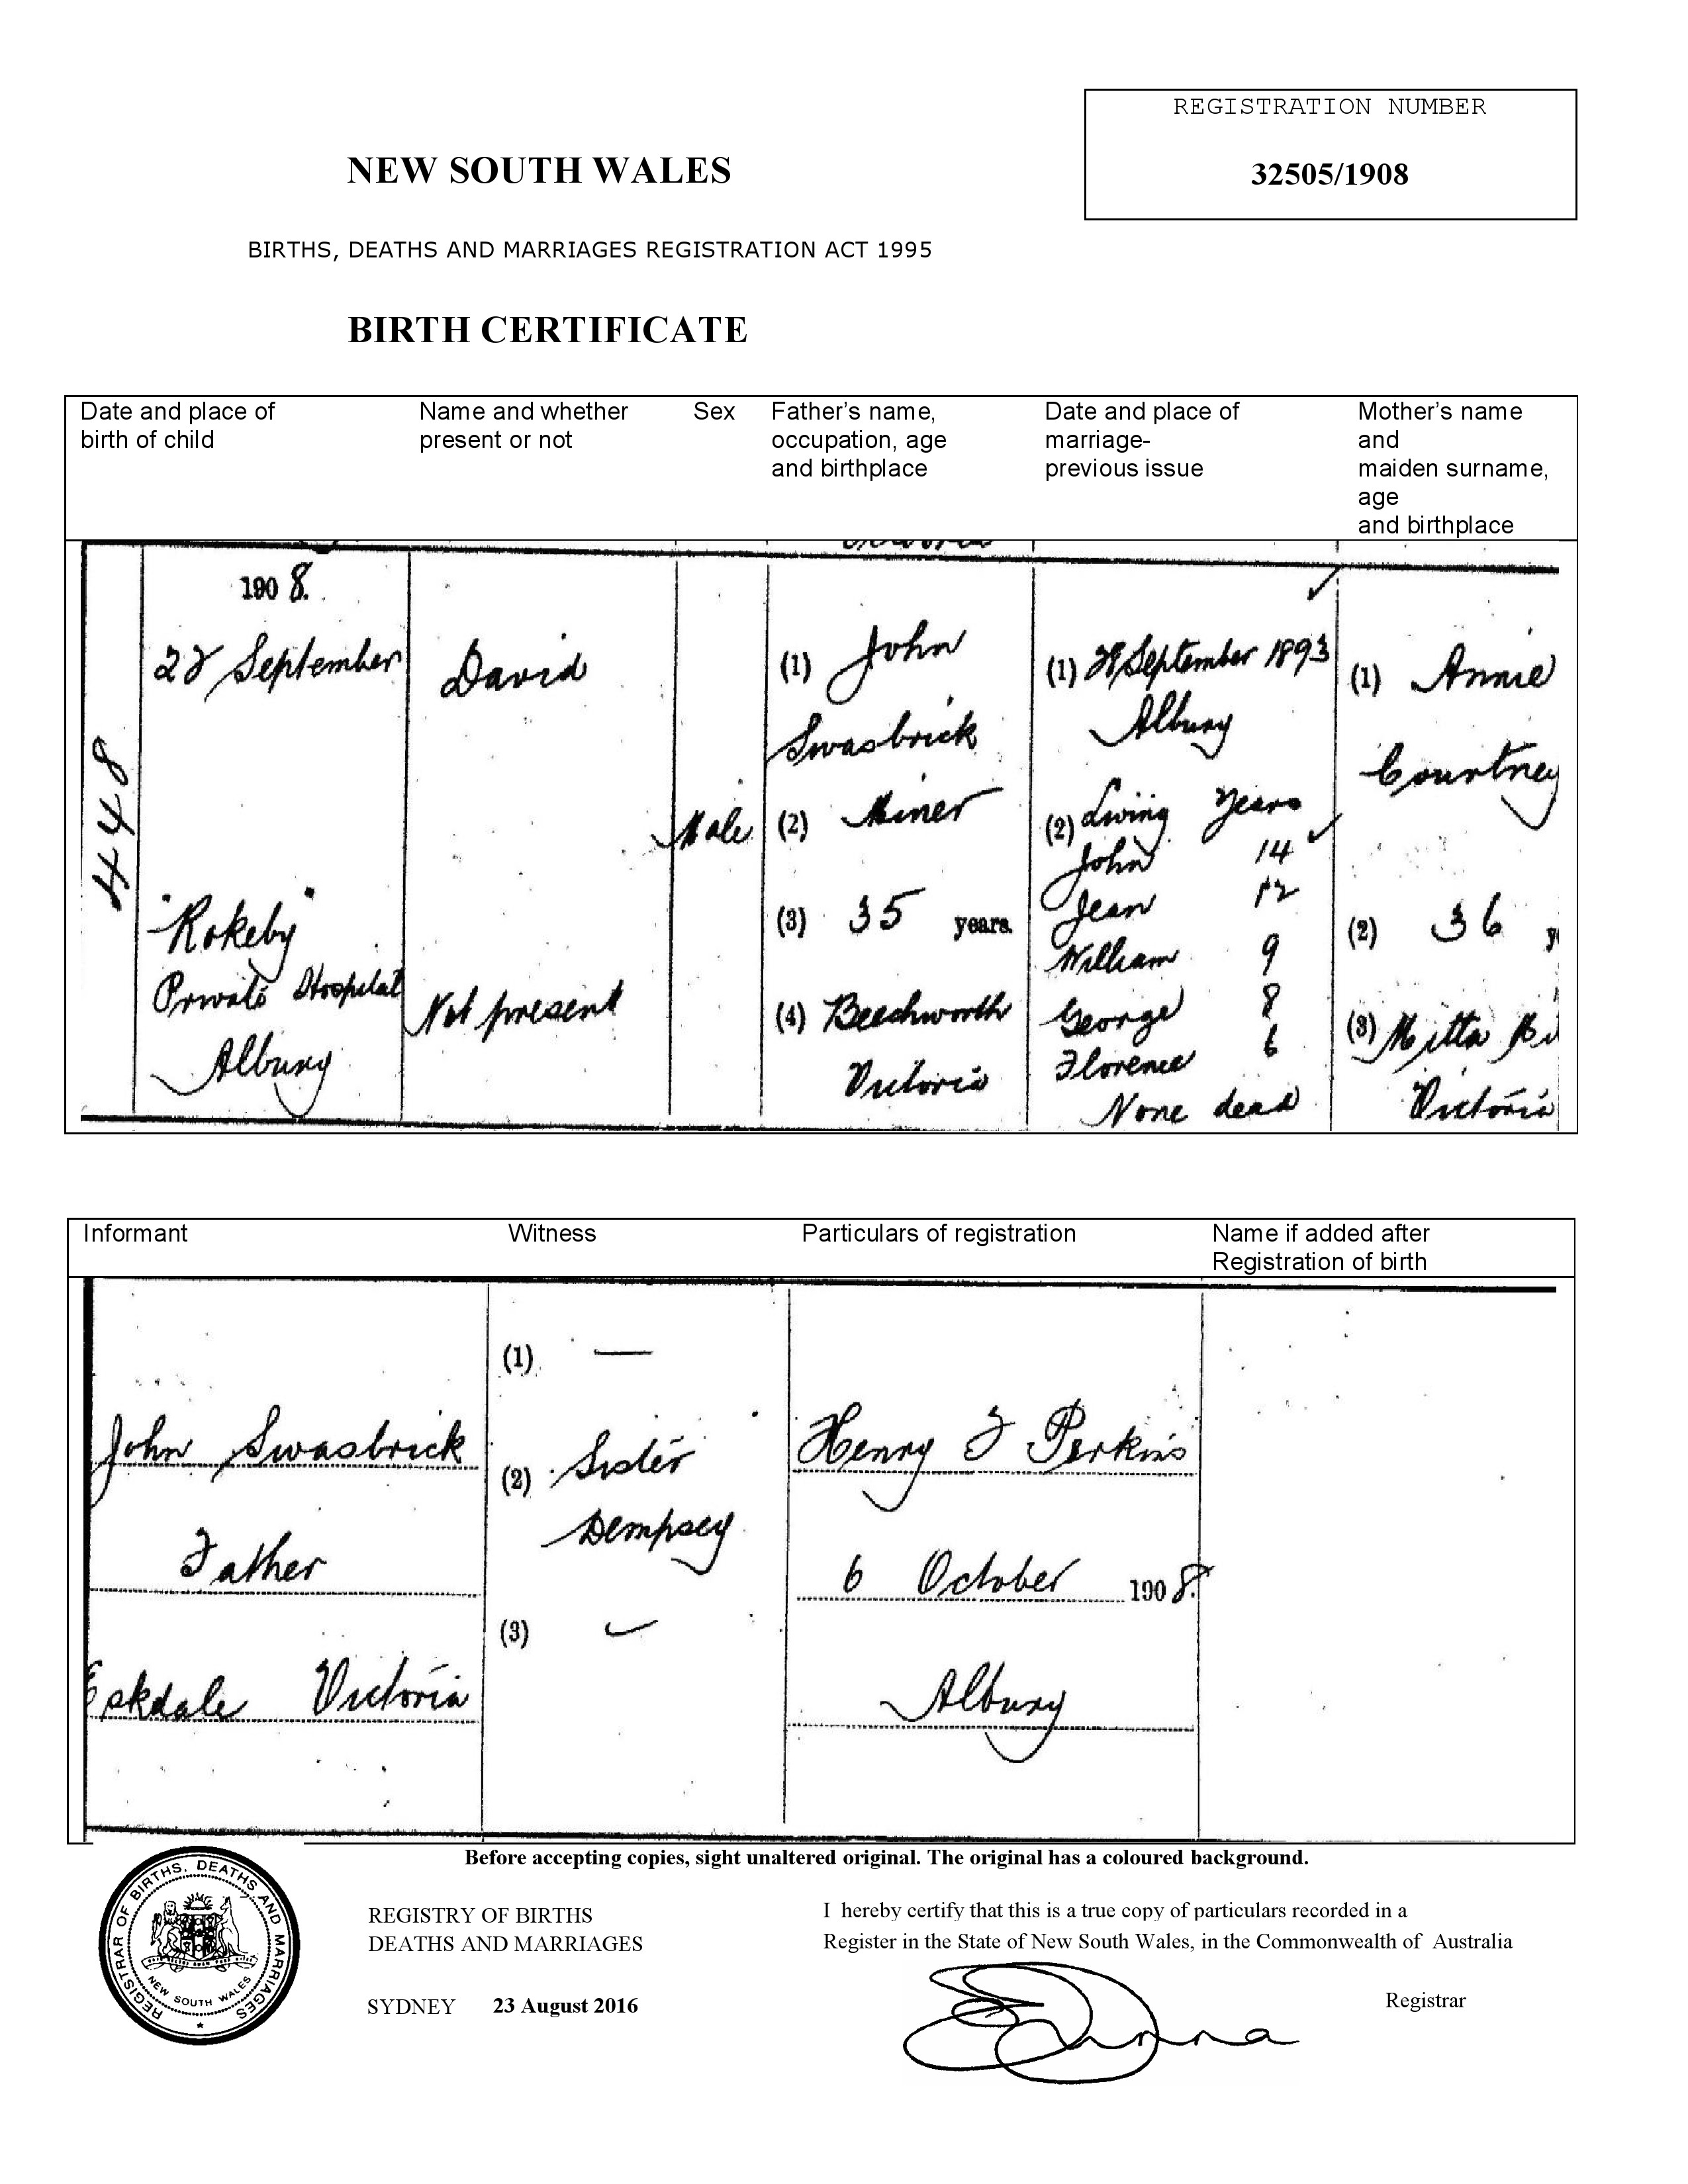 REGISTRATION NUMBER
32505/1908
NEW SOUTH WALES
BIRTHS, DEATHS AND MARRIAGES REGISTRATION ACT 1995
BIRTH CERTIFICATE
Date and place of
birth of child
Name and whether
present or not
Sex
Father's name,
occupation, age
and birthplace
Date and place of
marriage-
previous issue
Mother's name
and
maiden surname,
age
and birthplace
448
1908.
September
"Rokeby"
Private Hospital
Albury
David
Not present
Male
(1) John
Swasbrick
(2) Miner
(3) 35 years.
(4) Beechworth
Victoria
(1) September 1893
Albury
(2) Living Years
John 14
Jean 12
William 9
George 8
Florence 6
None dead
(1) Annie
Courtney
(2) 36 y
(3) Mitta
Victoria
Informant
Witness
Particulars of registration
Name if added after
Registration of birth
John Swasbrick
Father
Eskdale Victoria
(1) —
(2) Sister
Dempsey
(3)
Henry F Perkins
6 October 1908.
Albury
Before accepting copies, sight unaltered original. The original has a coloured background.
REGISTRAR OF BIRTHS, DEATHS AND MARRIAGES
NEW SOUTH WALES
REGISTRY OF BIRTHS
DEATHS AND MARRIAGES
SYDNEY 23 August 2016
I hereby certify that this is a true copy of particulars recorded in a
Register in the State of New South Wales, in the Commonwealth of Australia
Registrar